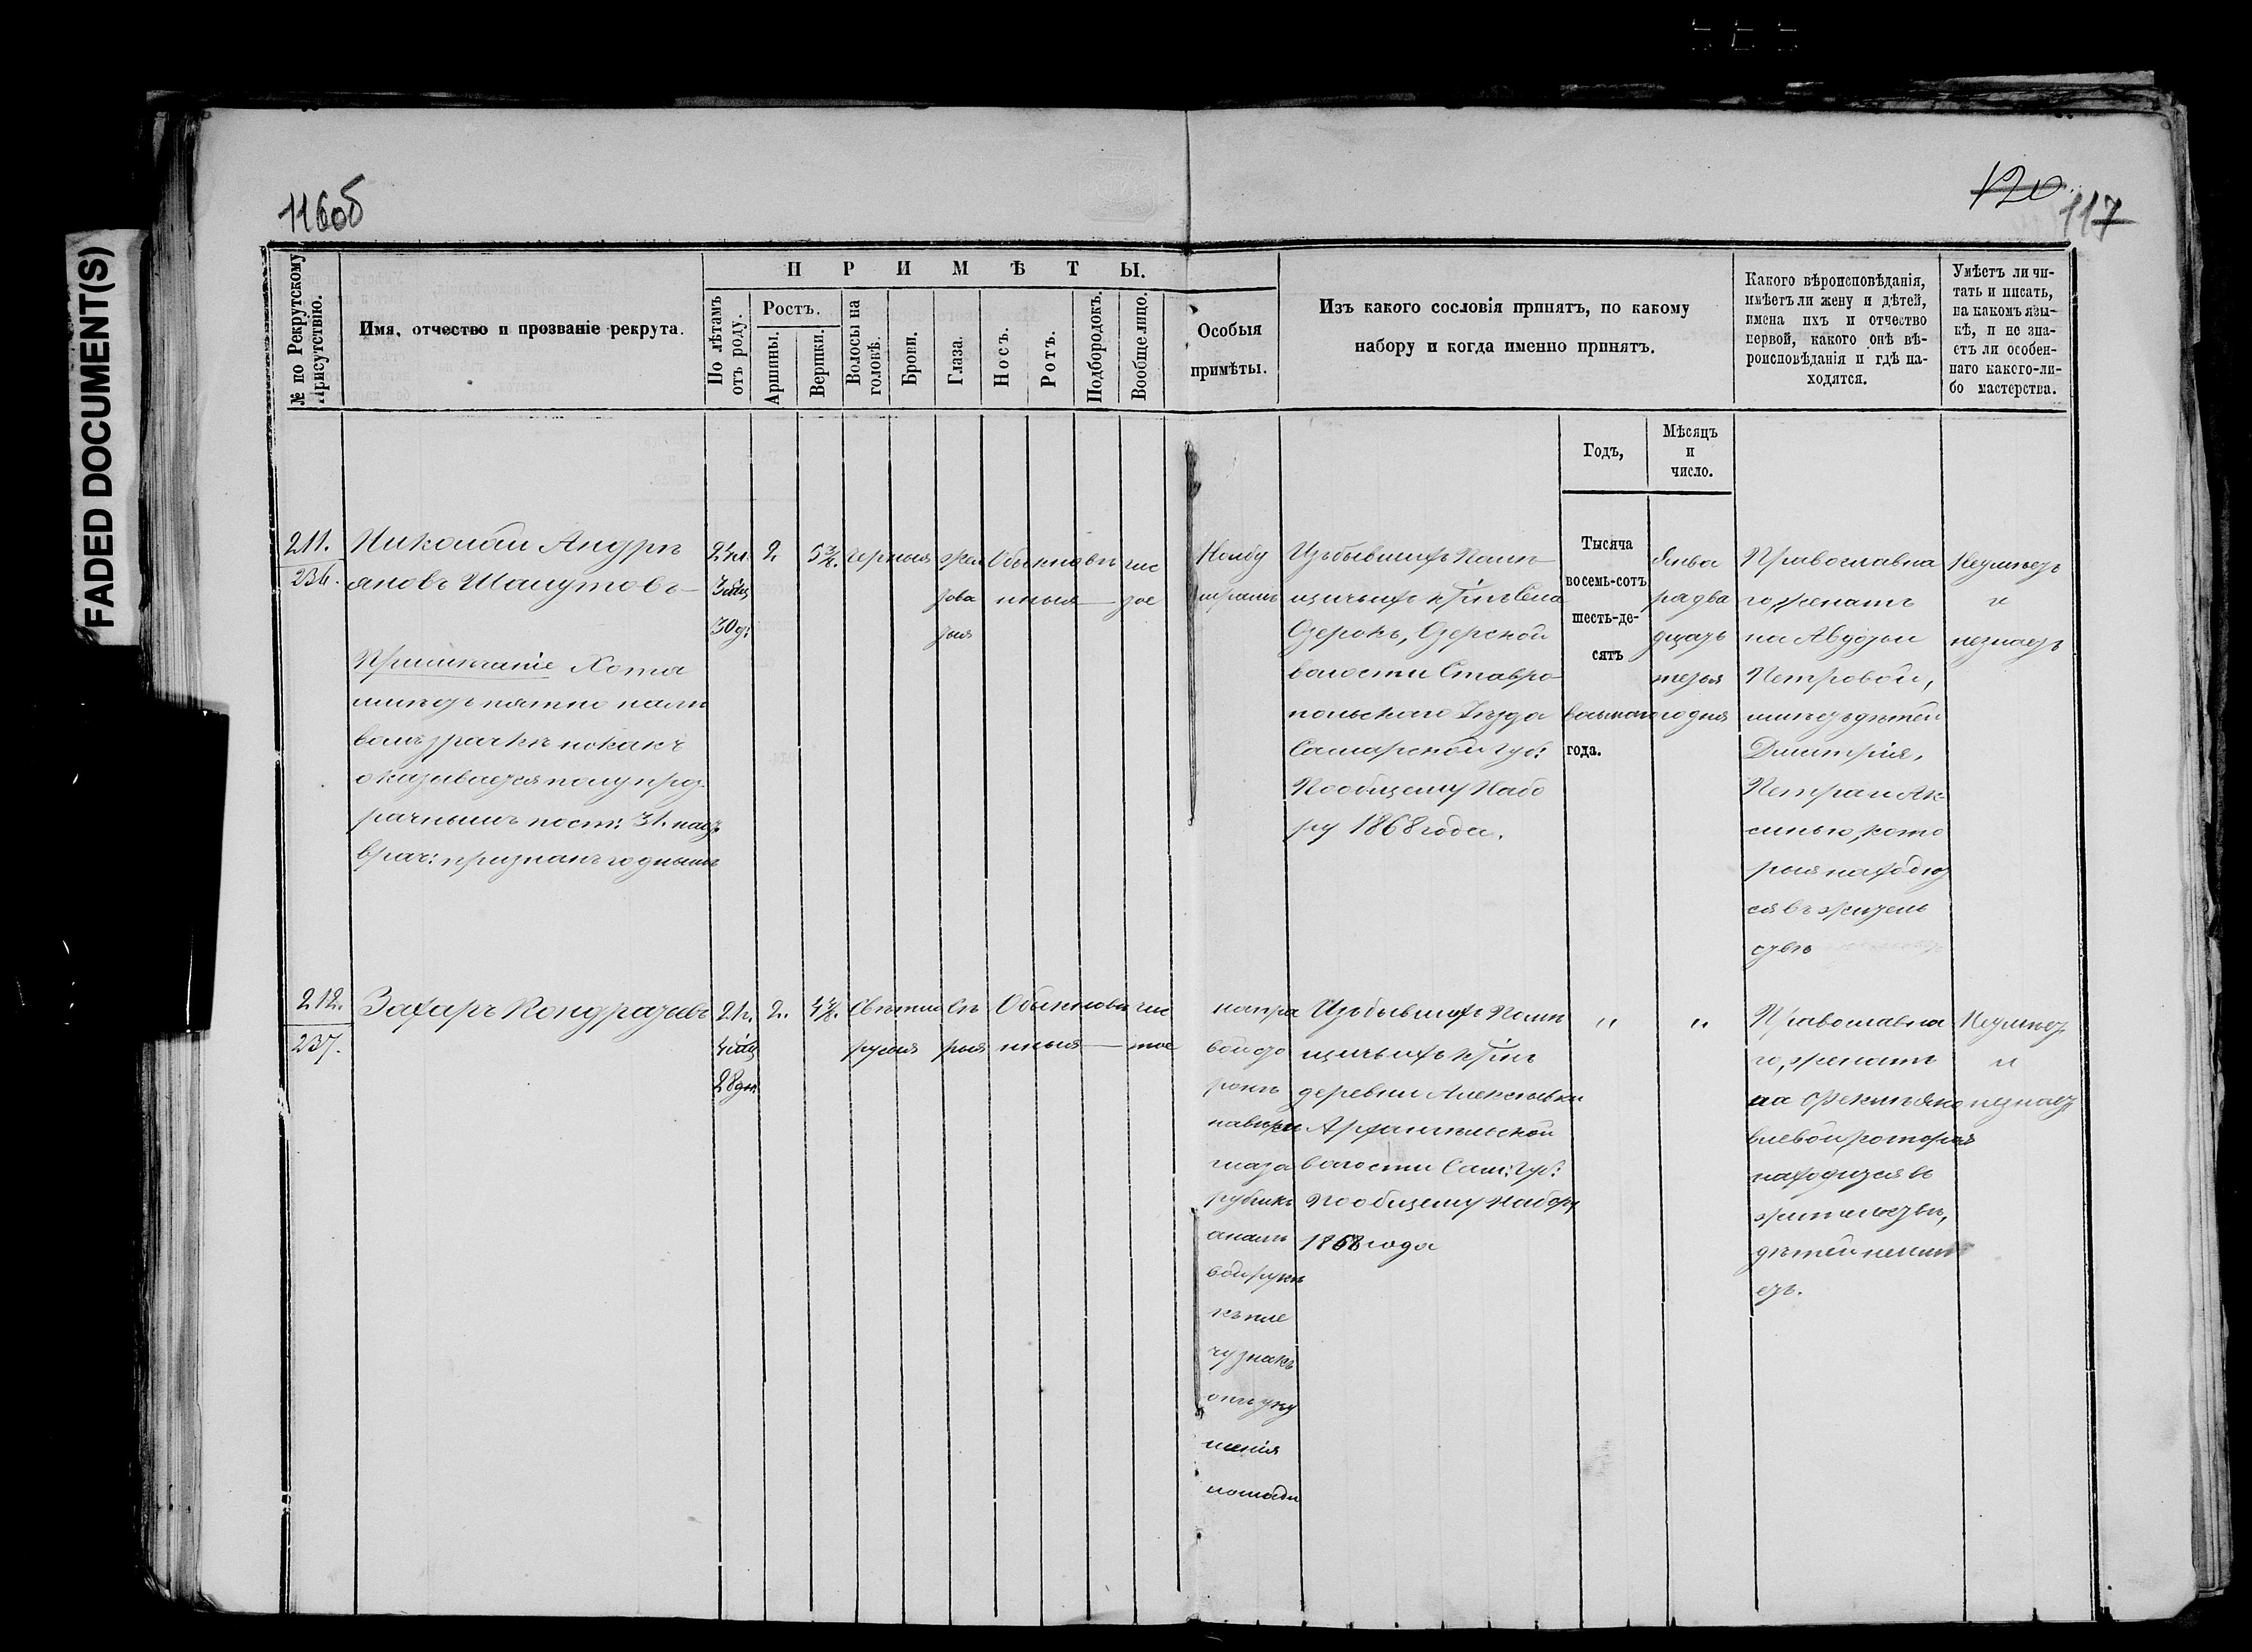 FADED DOCUMENT(S)
116об
120
117
№ по Рекрутскому
Присутствію.
Имя, отчество и прозваніе рекрута.
ПРИМѢТЫ.
По лѣтамъ
отъ роду.
Ростъ.
Аршины.
Вершки.
Волосы на
головѣ.
Брови.
Глаза.
Носъ.
Ротъ.
Подбородокъ.
Вообще лицо.
Особыя
примѣты.
Изъ какого сословія принятъ, по какому
набору и когда именно принятъ.
Годъ,
Мѣсяцъ
и
число.
Какого вѣроисповѣданія,
имѣетъ ли жену и дѣтей,
имена ихъ и отчество
первой, какого онѣ вѣ-
роисповѣданія и гдѣ на-
ходятся.
Умѣетъ ли чи-
тать и писать,
на какомъ язы-
кѣ, и не зна-
етъ ли особен-
наго какого-ли-
бо мастерства.
211.
236.
Николай Андрѣ
яновъ Шалутовъ
Примѣчаніе Хотя
имѣетъ пятно на лѣ
вомъ зрачкѣ но какъ
оказывается полупроз
рачнымъ
врач: признанъ годнымъ
24 л.
30 д:
2
5 3/8.
Черныя
Обыкновен
ныя
чис
тое
Изъ бывшихъ Помѣ
щичьихъ крѣнъ Села
Озерокъ, Озерской
волости Ставро
польскаго Уѣзда
Самарской Губ:
По общему Набо
ру 1868 года.
Тысяча
восемь-сотъ
шесть-де-
сятъ
восьмого
года.
Янва
ря два
дцать
третья
го дня
Православна
го, женатъ
на Авдотьи
Петровой,
имѣетъ дѣтей
Дмитрія,
Петра и Ак-
синью, кото
рыя находют
ся въ житель
ствѣ
Неумѣетъ
и
незнаетъ
212.
237.
Захаръ Кондратьевъ
21 г.
4 мѣц
28 дн.
2.
Свѣтло
русыя
Сѣ
рыя
Обыкновен
ныя
чис
тое
на пра
вой сто
ронѣ
глаза
рубецъ
а на лѣ
вой рукѣ
къ пле
чу знакъ
отъ уку
шенія
лошади
Изъ бывшихъ Помѣ
щичьихъ крѣнъ
деревни Алексѣевки
Архангельской
волости Сам: Губ:
По общему Набору
1868 года
"
"
Православна
го, женатъ
на Феклѣ Яко
влевой, которая
находится въ
жительствѣ,
дѣтей неимѣ
етъ.
Неумѣетъ
и
незнаетъ